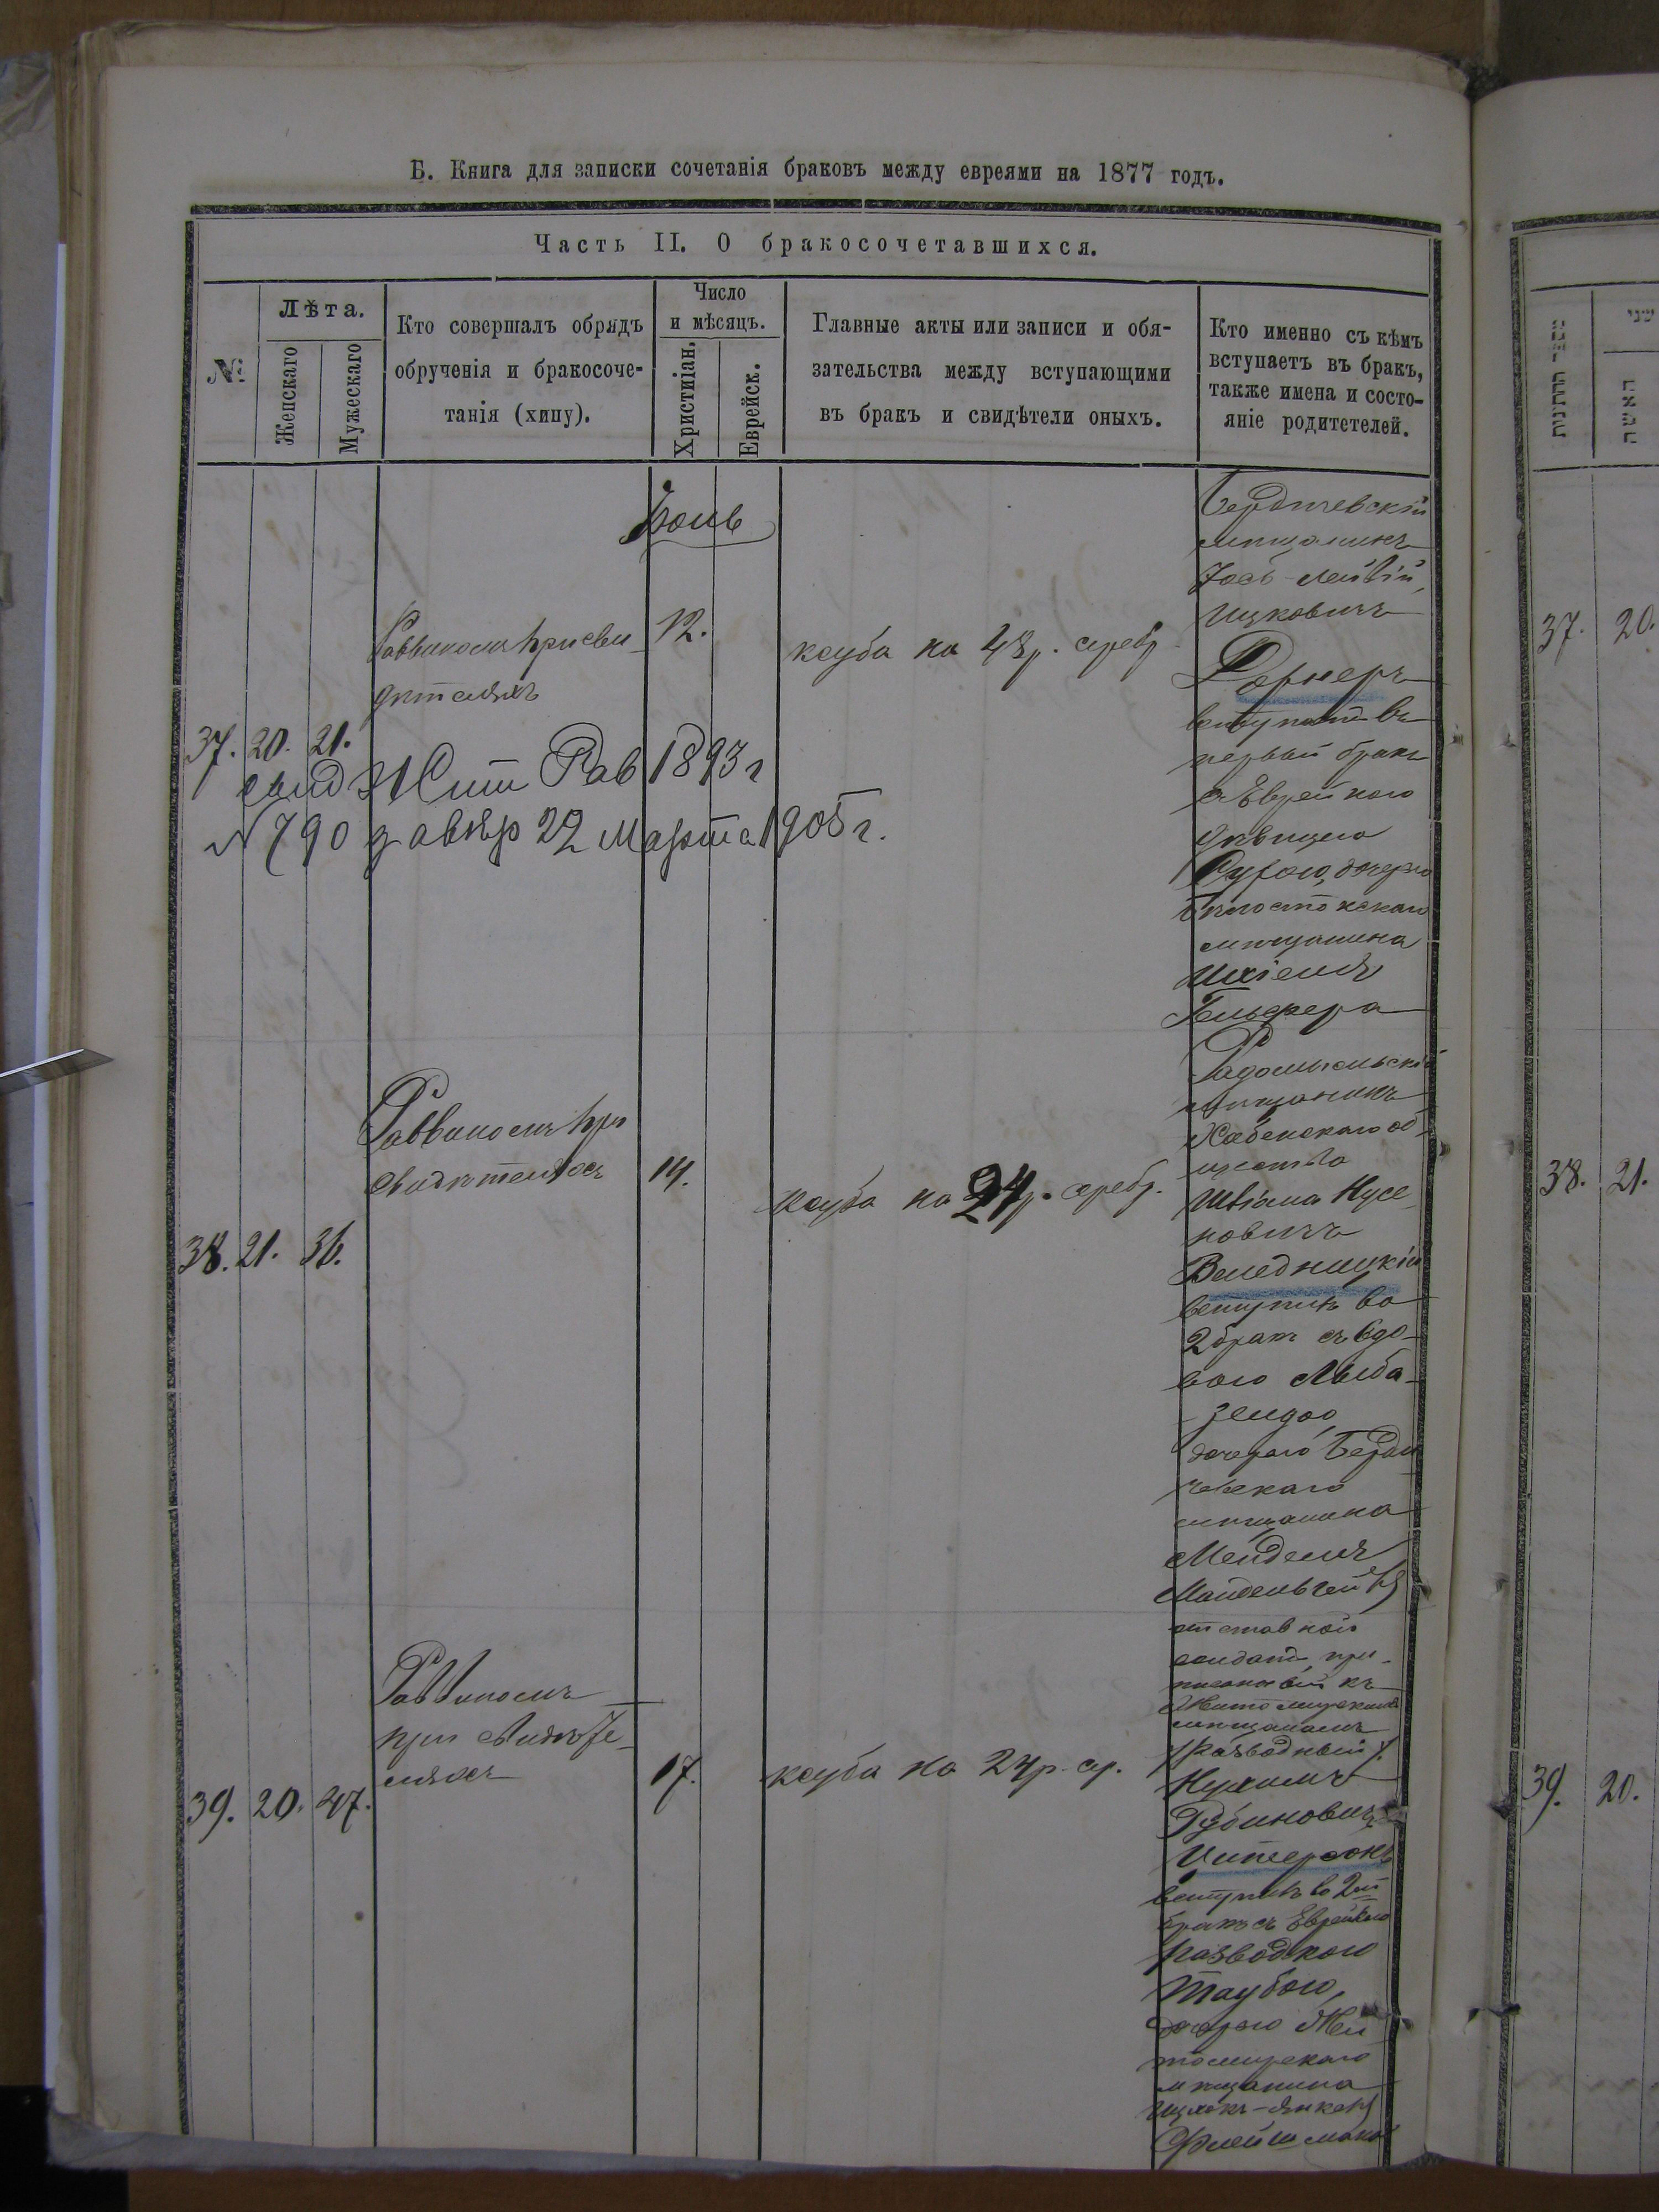 Б. Книга для записки сочетанія браковъ между евреями на 1877 годъ.
Часть II. О бракосочетавшихся.
№
Лѣта.
Женскаго
Мужескаго
Кто совершалъ обрядъ
обрученія и бракосоче-
танія (хипу).
Число
и мѣсяцъ.
Христиіан.
Еврейск.
Главные акты или записи и обя-
зательства между вступающими
въ бракъ и свидѣтели оныхъ.
Кто именно съ кѣмъ
вступаетъ въ бракъ,
также имена и состо-
яніе родитетелей.
37. 20. 21.
Раввиномъ при сви
дѣтеляхъ
12.
ксуба на 48 р. серебр.
Бердичевскій
мѣщанинъ
Іось-Лейвій
Ицковичъ
Дорнеръ
вступилъ въ
первый бракъ
съ Еврейкою
дѣвицею
Рухлею, дочерью
Бѣлостокскаго
мѣщанина
Ихіеля
Гельфера
Жит Рав 1893 г
№ 790 завѣр 22 Марта 1905 г.
38. 21. 36.
Раввиномъ при
свидѣтеляхъ
14.
ксуба на 24 р. серебр.
Радомысльскій
мѣщанинъ
Хабенскаго об
щества
Нусе
новичъ
Веледницкій
вступилъ во
2 бракъ съ вдо-
вою
дочерью Берди
чевскаго
мѣщанина
Менделя
39. 20. 47.
Раввиномъ
при свидѣте
ляхъ
17.
ксуба на 24 р. ср.
отставной
солдатъ при-
писанный къ
Житомирскимъ
мѣщанамъ
/Разводный/
Нухимъ
Рубиновичъ
вступилъ во 2й
бракъ съ Еврейкою
разводкою
Таубою,
дочерью Жи
томирскаго
мѣщанина
Ицкохъ-Янкеля
Флейшмана
37. 20.
38. 21.
39. 20.
מספר החתונות
שני
האשה